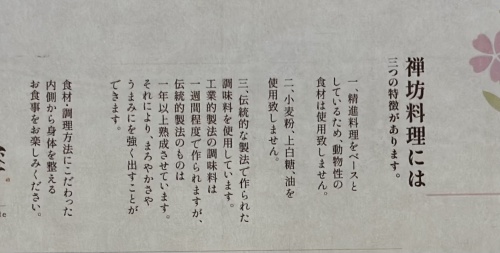 禅坊料理には
三つの特徴があります。
一、精進料理をベースと
しているため、動物性の
食材は使用致しません。
二、小麦粉、上白糖、油を
使用致しません。
三、伝統的な製法で作られた
調味料を使用しています。
工業的製法の調味料は
一週間程度で作られますが、
伝統的製法のものは
一年以上熟成させています。
それにより、まろやかさや
うまみにを強く出すことが
できます。
食材・調理方法にこだわった
内側から身体を整える
お食事をお楽しみください。